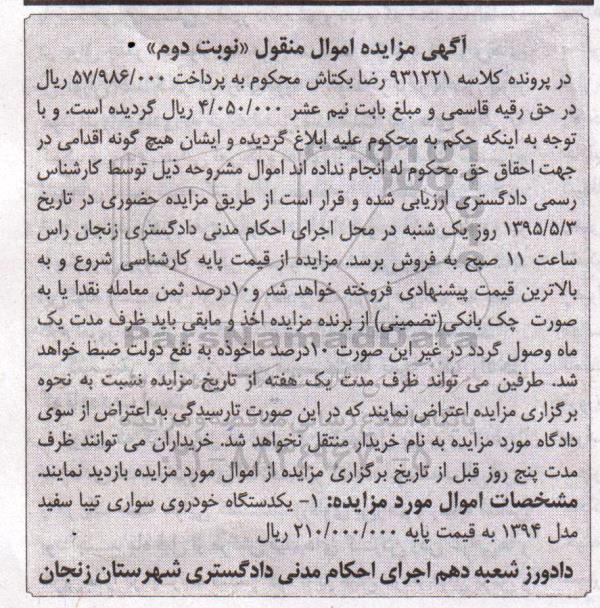 آگهی مزایده اموال منقول «نوبت دوم»
در پرونده کلاسه ۹۳۱۲۲۱ رضا بکتاش محکوم به پرداخت ۵۷/۹۸۶/۰۰۰ ریال
در حق رقیه قاسمی و مبلغ بابت نیم عشر ۴/۰۵۰/۰۰۰ ریال گردیده است. و با
توجه به اینکه حکم به محکوم علیه ابلاغ گردیده و ایشان هیچ گونه اقدامی در
جهت احقاق حق محکوم له انجام نداده اند اموال مشروحه ذیل توسط کارشناس
رسمی دادگستری ارزیابی شده و قرار است از طریق مزایده حضوری در تاریخ
۱۳۹۵/۵/۳ روز یک شنبه در محل اجرای احکام مدنی دادگستری زنجان راس
ساعت ۱۱ صبح به فروش برسد. مزایده از قیمت پایه کارشناسی شروع و به
بالاترین قیمت پیشنهادی فروخته خواهد شد و۱۰درصد ثمن معامله نقدا یا به
صورت چک بانکی(تضمینی) از برنده مزایده اخذ و مابقی باید ظرف مدت یک
ماه وصول گردد در غیر این صورت ۱۰درصد ماخوذه به نفع دولت ضبط خواهد
شد. طرفین می تواند ظرف مدت یک هفته از تاریخ مزایده نسبت به نحوه
برگزاری مزایده اعتراض نمایند که در این صورت تارسیدگی به اعتراض از سوی
دادگاه مورد مزایده به نام خریدار منتقل نخواهد شد. خریداران می توانند ظرف
مدت پنج روز قبل از تاریخ برگزاری مزایده از اموال مورد مزایده بازدید نمایند.
مشخصات اموال مورد مزایده: ۱- یکدستگاه خودروی سواری تیبا سفید
مدل ۱۳۹۴ به قیمت پایه ۲۱۰/۰۰۰/۰۰۰ ریال
دادورز شعبه دهم اجرای احکام مدنی دادگستری شهرستان زنجان
ParsNamadData